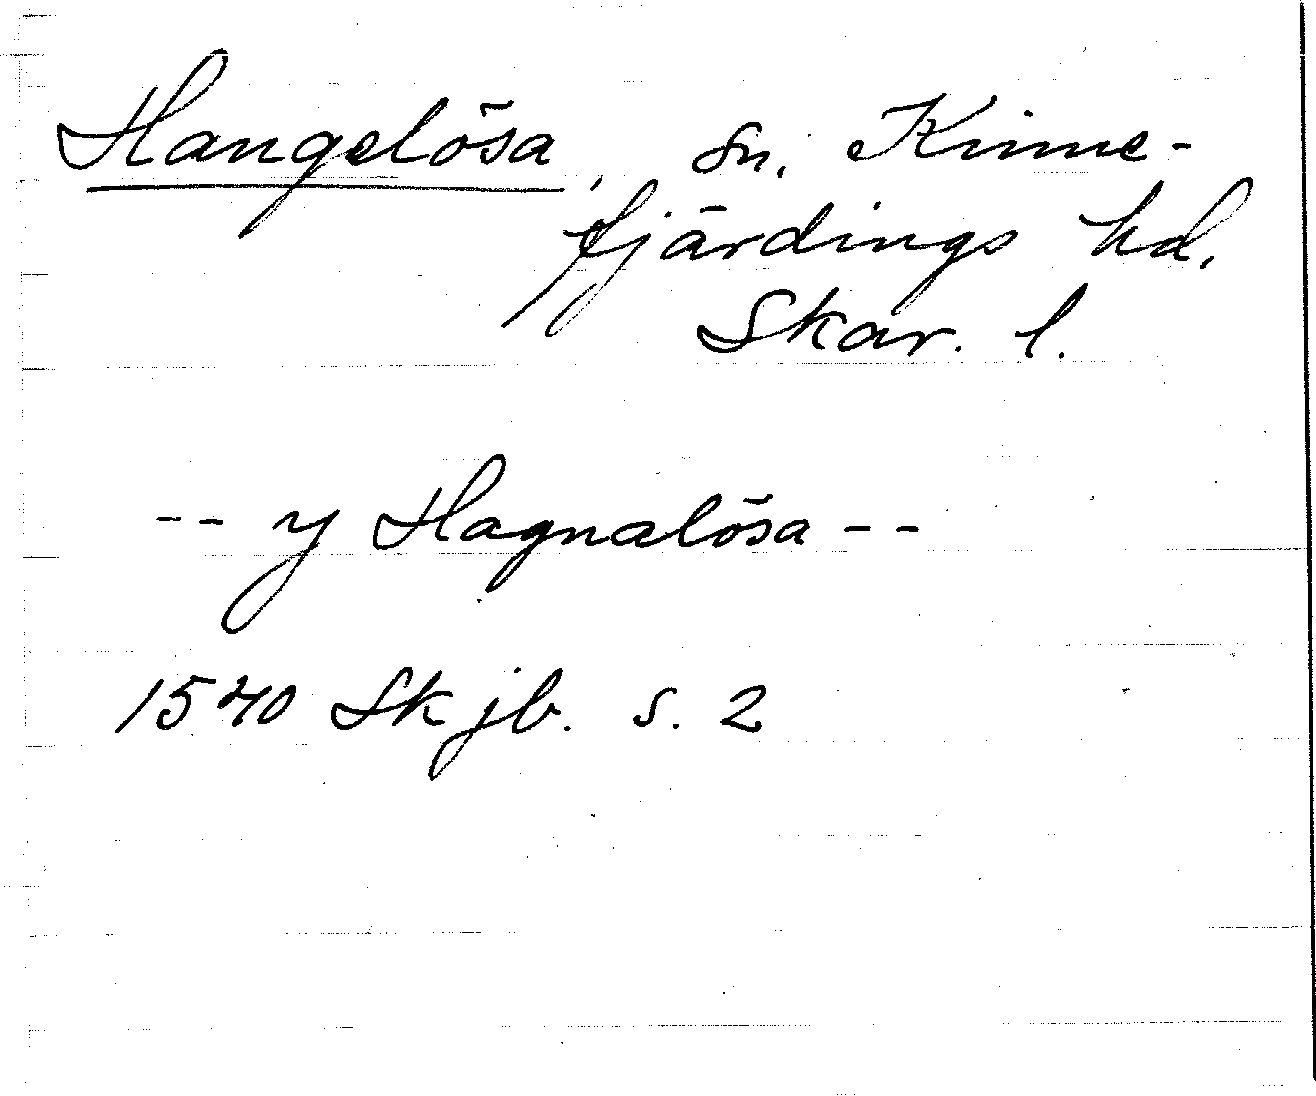 Hangelösa, sn. Kinne-
fjärdings hd.
Skar. l.
-- y Hagnalösa --
1540 Sk jb. s. 2